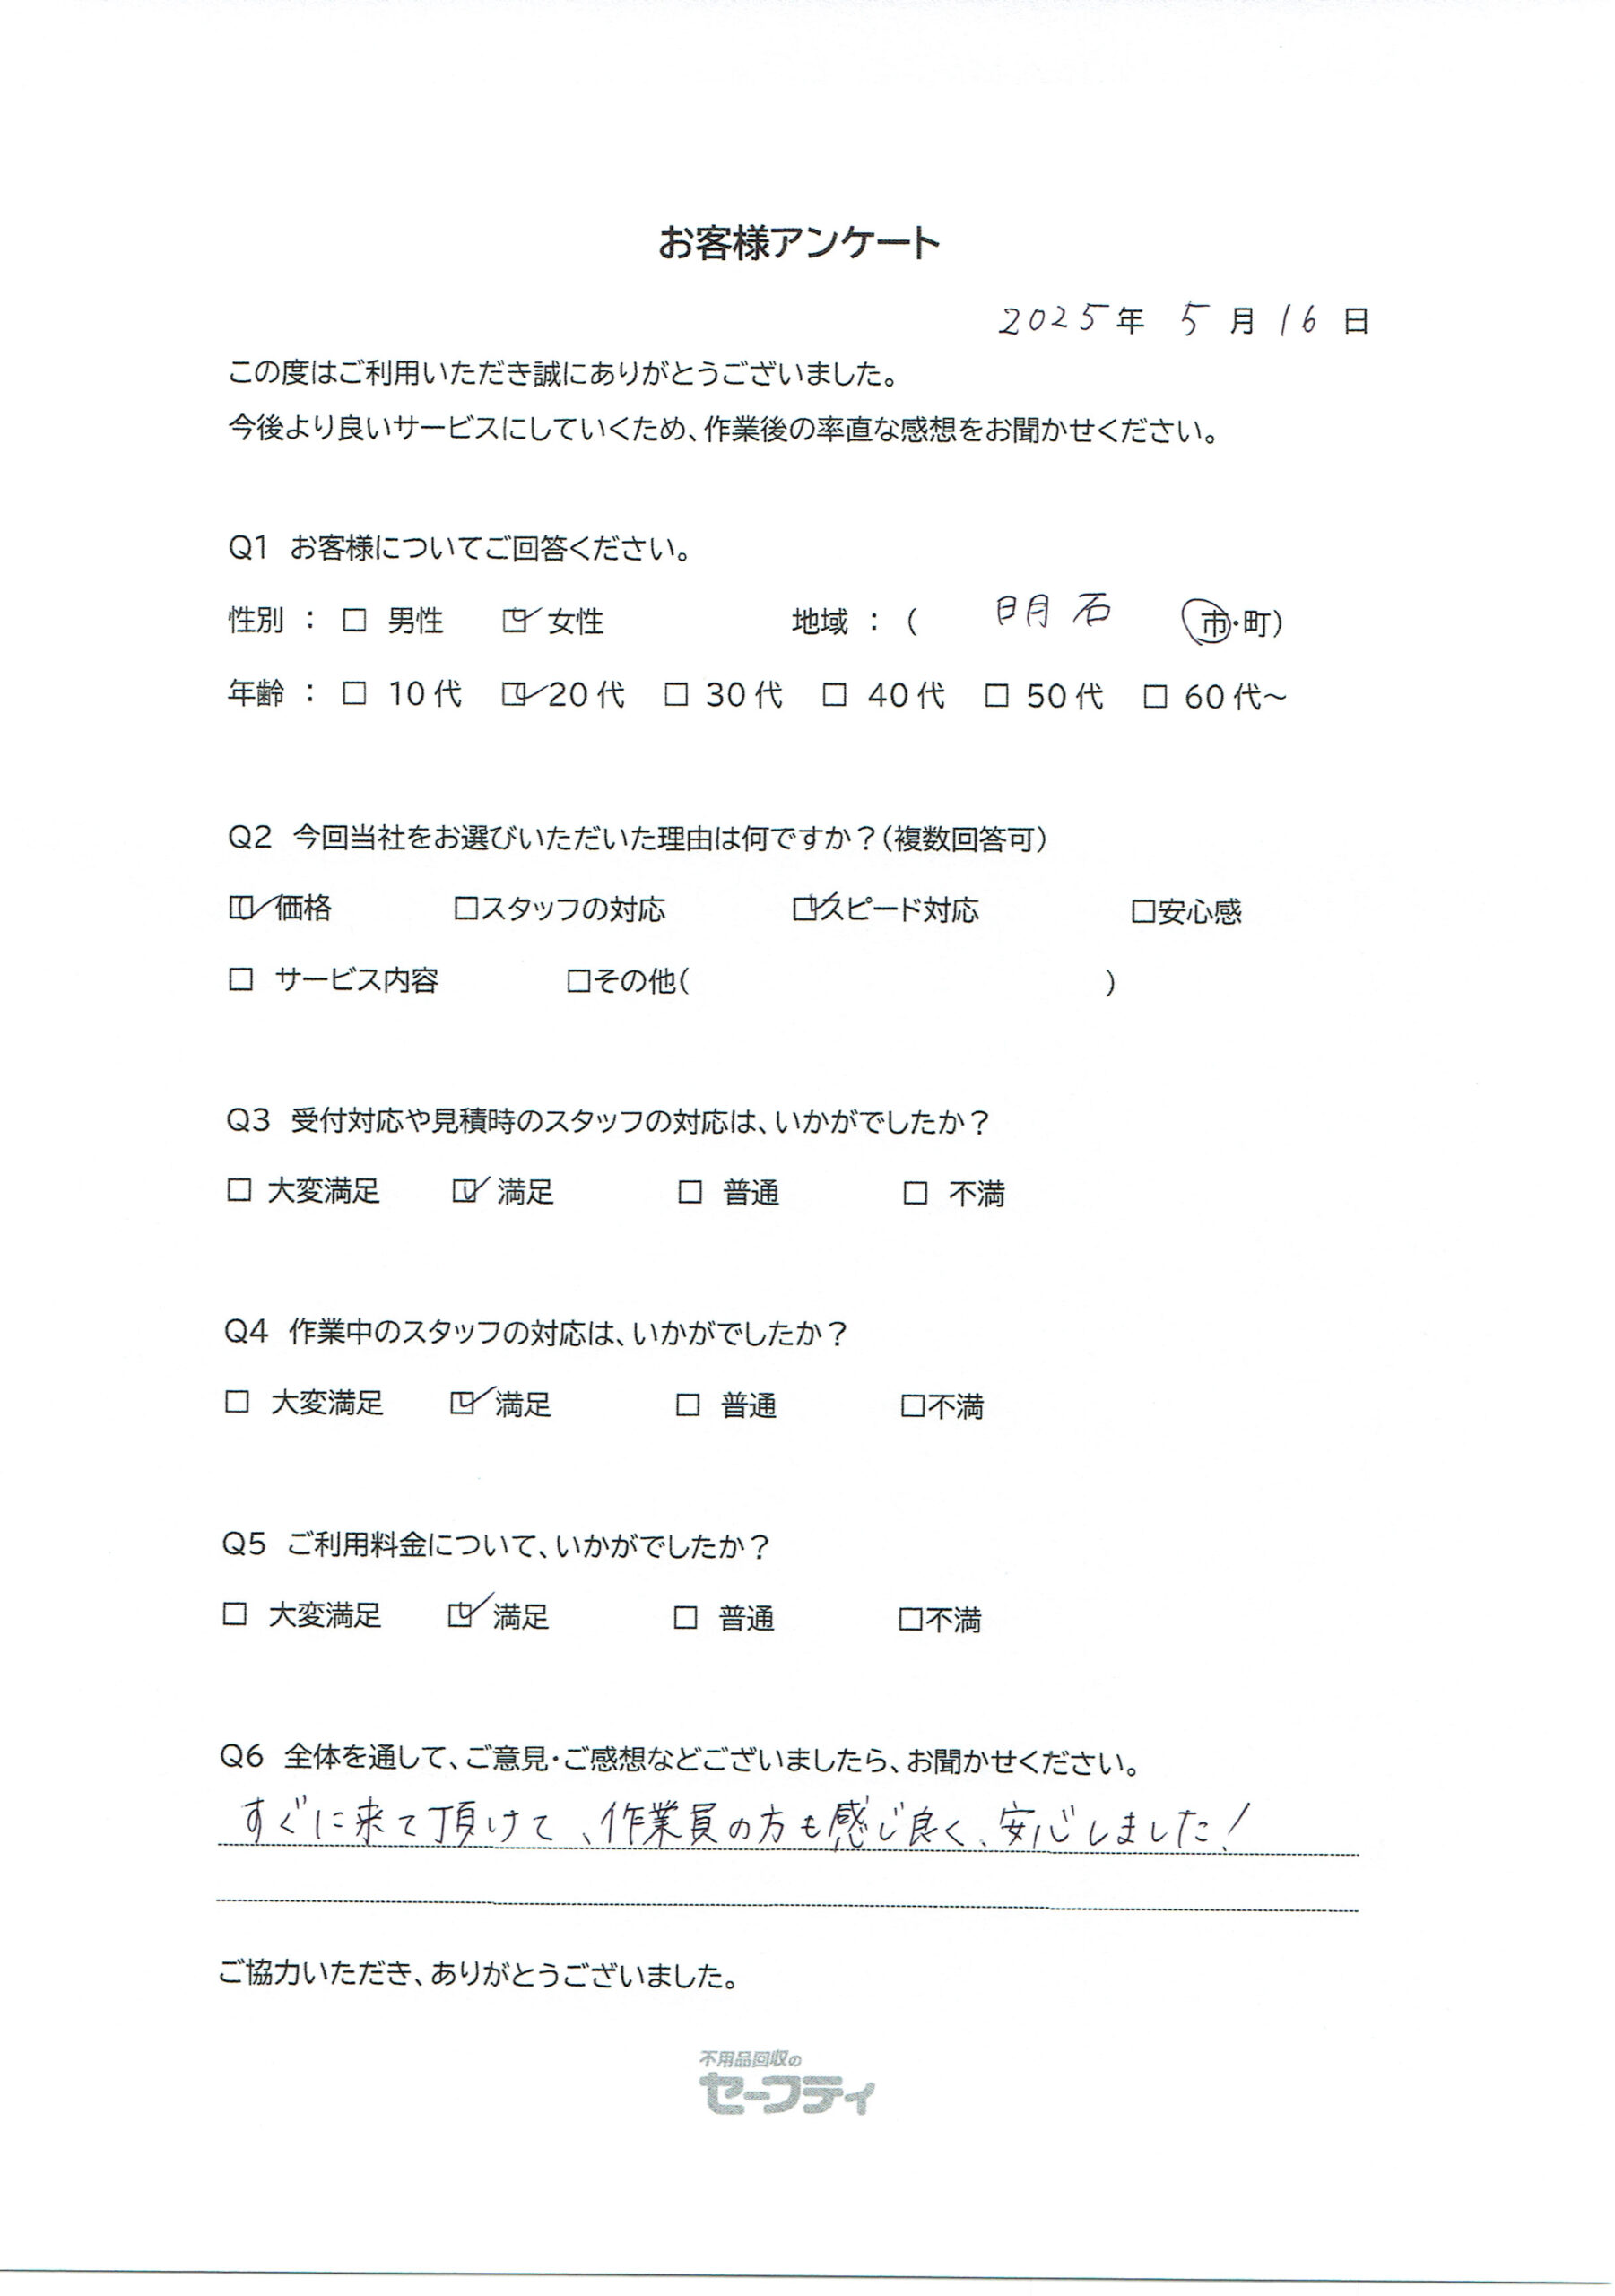 お客様アンケート
2025年 5月16日
この度はご利用いただき誠にありがとうございました。
今後より良いサービスにしていくため、作業後の率直な感想をお聞かせください。
Q1 お客様についてご回答ください。
性別 : □ 男性 ☑ 女性 地域 : ( 明石 市・町)
年齢 : □ 10代 ☑ 20代 □ 30代 □ 40代 □ 50代 □ 60代～
Q2 今回当社をお選びいただいた理由は何ですか?(複数回答可)
☑ 価格 □スタッフの対応 ☑スピード対応 □安心感
□ サービス内容 □その他( )
Q3 受付対応や見積時のスタッフの対応は、いかがでしたか?
□ 大変満足 ☑ 満足 □ 普通 □ 不満
Q4 作業中のスタッフの対応は、いかがでしたか?
□ 大変満足 ☑ 満足 □ 普通 □不満
Q5 ご利用料金について、いかがでしたか?
□ 大変満足 ☑ 満足 □ 普通 □不満
Q6 全体を通して、ご意見・ご感想などございましたら、お聞かせください。
すぐに来て頂けて、作業員の方も感じ良く、安心しました!
ご協力いただき、ありがとうございました。
不用品回収の
セーフティ